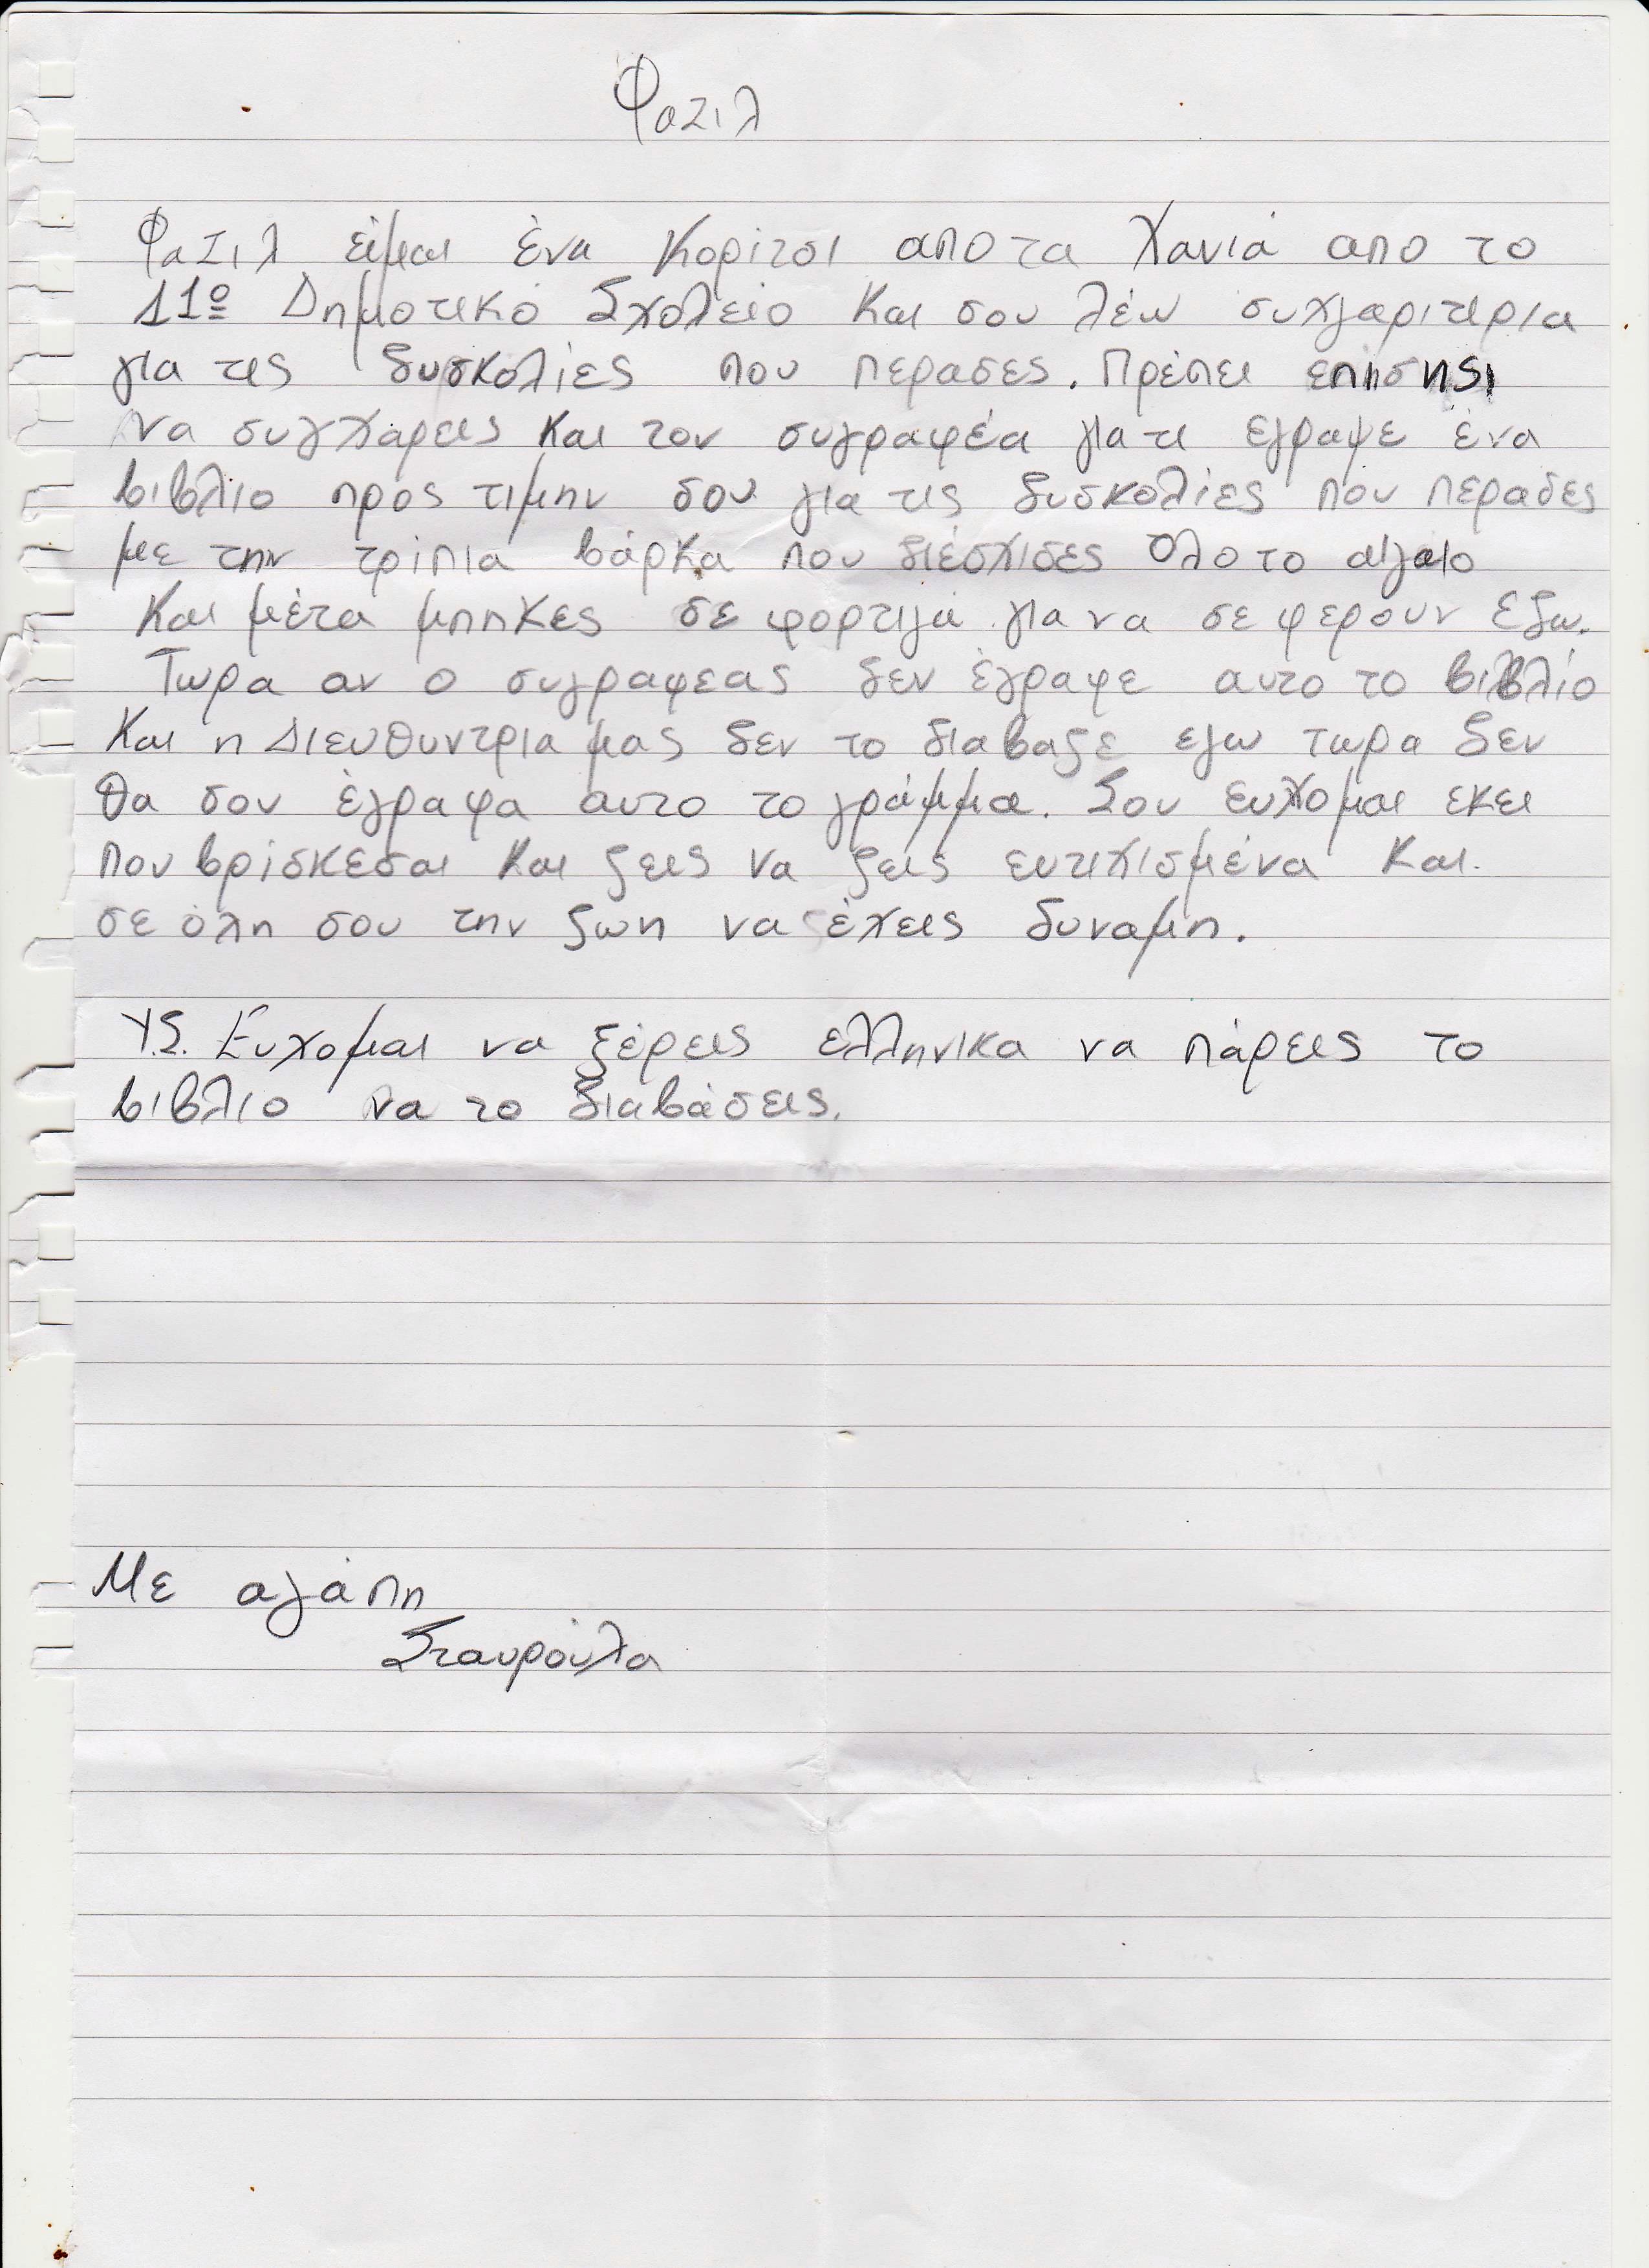 Φαζιλ
Φαζιλ είμαι ένα κορίτσι απο τα Χανιά απο το
11ο Δημοτικό Σχολείο και σου λέω συχγαριτιρια
για τις δυσκολίες που περασες. Πρέπει επισης
να συγχαρεις και τον συγραφέα γιατι εγραψε ένα
βιβλιο προς τιμην σου για τις δυσκολίες που περασες
με την τρίπια βάρκα που διέσχισες όλο το αιγαίο
και μέτα μπηκες σε φορτιγά για να σε φερουν εδω.
Τωρα αν ο συγραφεας δεν έγραφε αυτο το βιβλίο
και η Διευθυντρια μας δεν το διαβαζε εγω τωρα δεν
θα σου έγραφα αυτο το γράμμα. Σου ευχομαι εκει
που βρίσκεσαι και ζεις να ζεις ευτιχισμένα και
σε όλη σου την ζωη να έχεις δυναμη.
Υ.Σ. Ευχομαι να ξέρεις ελληνικα να πάρεις το
βιβλιο να το διαβάσεις.
Με αγάπη
Σταυρούλα